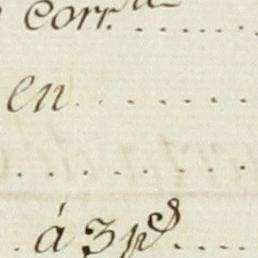 corr.te ......
en ......
......
á 3 p.s ....